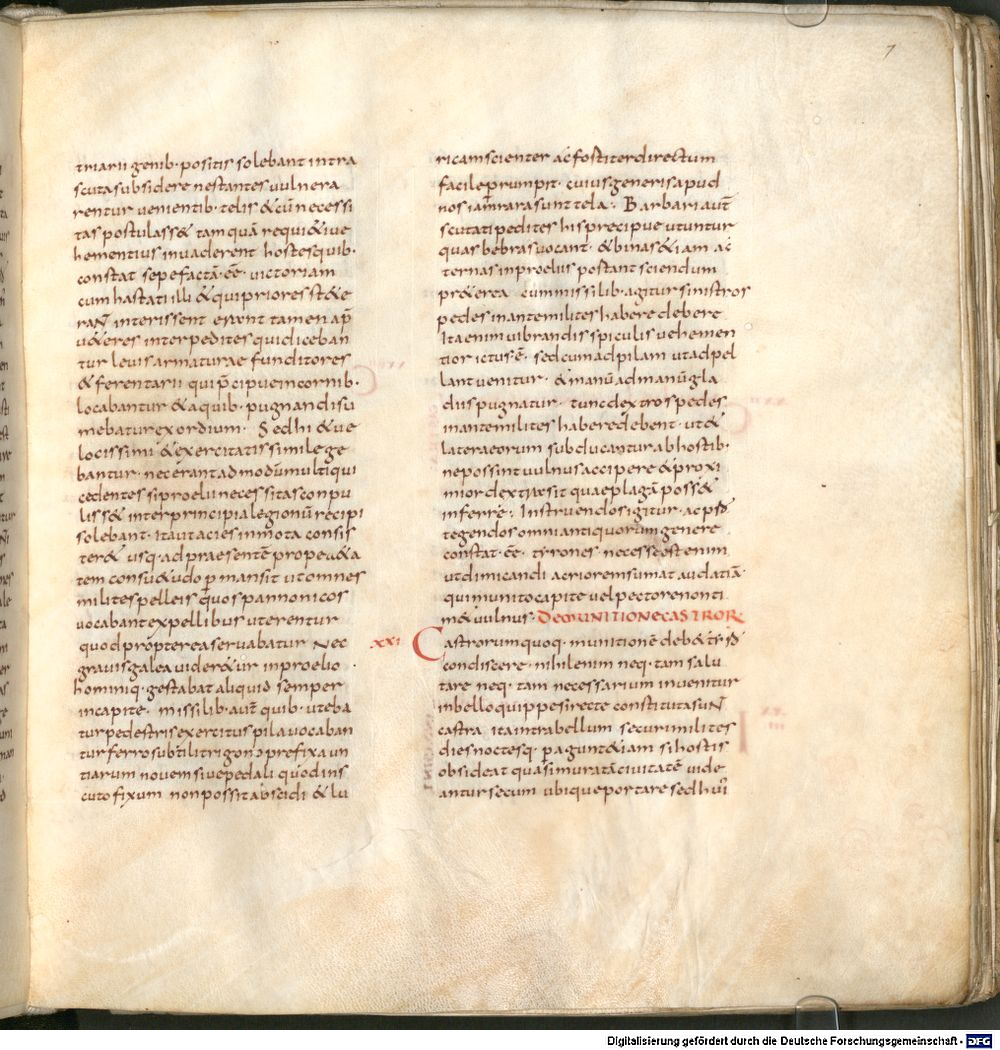 7
triarii genib· positis solebant intra
scuta subsidere ne stantes vulnera
rentur venientib· telis & cū necessi
tas postulass& tamquā requi&i ve
hementius invaderent hostes quib·
constat sepe factā· eē· victoriam
cum hastati illi & qui priores st&e
raɴ interissent erant tamen ap̄
u&eres inter pedites qui diceban
tur levis armaturae funditores
& ferentarii qui p̄cipue in cornib·
locabantur & a quib· pugnandi su
mebatur exordium· Sed hi & ve
locissimi & exercitatissimi lege
bantur· nec erant admodū multi qui
cedentes si proelii necessitas conpu
liss& inter principia legionū recipi
solebant· ita ut acies inmota consis
ter& usq· ad praesentē prope &a
tem consu&udo p mansit ut omnes
milites pelleis quos pannonicos
vocabant ex pellibus uterentur
quod propterea servabatur Nec
gravis galea vider&ur in proelio·
hominiq· gestabat aliquid semper
in capite· missilib· aut̄ quib· uteba
tur pedestris exercitus pila vocaban
tur ferro subtili trigono prefixa un
tiarum novem sive pedali quod in s
cuto fixum non possit abscidi & lu
ricam scienter ac fostiter directum
facile prumpit· cuius generis apud
nos iam rara sunt tela· Barbari aut̄
scutati pedites his precipue utuntur
quas bebras vocant· & binas &iam ac
ternas in proeliis postant sciendum
pr&erea cum missilib· agitur sinistros
pedes in ante milites habere debere
Ita enim vibrandis spiculis vehemen
tior ictus ē· sed cum ad pilam ut adpel
lant venitur· & manū ad manū gla
diis pugnatur· tunc dextros pedes
in ante milites habere debent· ut &
latera eorum subducantur ab hostib·
ne possint vulnus accipere & proxi
mior dextra sit quae plagā poss&
inferre· Instruendos igitur· ac p
tegendos omni antiquorum genere
constat· eē· tyrones· necesse ost enim
ut dimicandi acriorem sumat audatiā·
qui munito capite vel pectore non ti
m& vulnus· DE MUNITIONE CASTROR·
XXI· Castrorum quoq· munitionē deb&
condiscere· nihil enim neq· tam salu
tare neq· tam necessarium invenitur
in bello quippe si recte constituta suɴ
castra ita intra bellum securi milites
dies noctesq· pagunt &iam si hostis
obsideat quasi muratā civitatē vide
antur secum ubique portare sed h
Digitalisierung gefördert durch die Deutsche Forschungsgemeinschaft - DFG